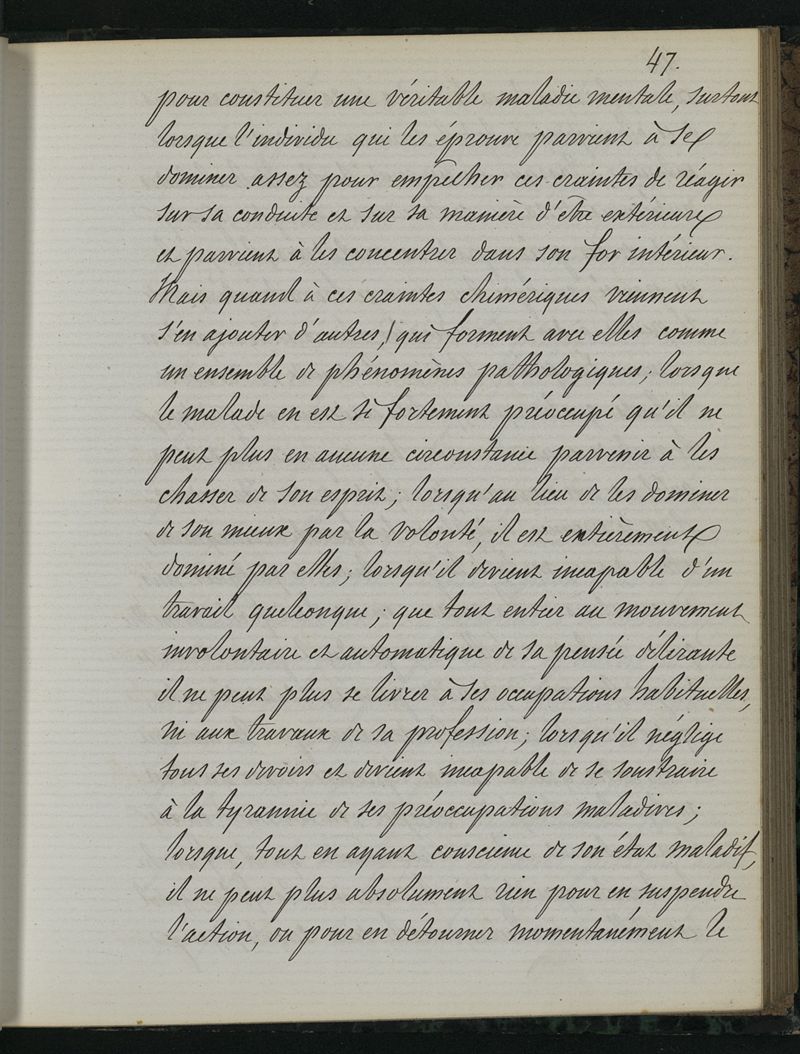 47.
pour constituer une véritable maladie mentale, surtout
lorsque l'individu qui les éprouve parvient à se
dominer assez pour empêcher ces craintes de réagir
sur sa conduite et sur sa manière d'être extérieure
et parvient à les concentrer dans son for intérieur.
Mais quand à ces craintes chimériques viennent
s'en ajouter d'autres, qui forment avec elles comme
un ensemble de phénomènes pathologiques; lorsque
le malade en est si fortement préoccupé qu'il ne
peut plus en aucune circonstance parvenir à les
chasser de son esprit; lorsqu'au lieu de les dominer
de son mieux par la volonté, il est entièrement
dominé par elles; lorsqu'il devient incapable d'un
travail quelconque; que tout entier au mouvement
involontaire et automatique de sa pensée délirante
il ne peut plus se livrer à ses occupations habituelles,
ni aux travaux de sa profession; lorsqu'il néglige
tous ses devoirs et devient incapable de se soustraire
à la tyrannie de ses préoccupations maladives;
lorsque, tout en ayant conscience de son état maladif,
il ne peut plus absolument rien pour en suspendre
l'action, ou pour en détourner momentanément le